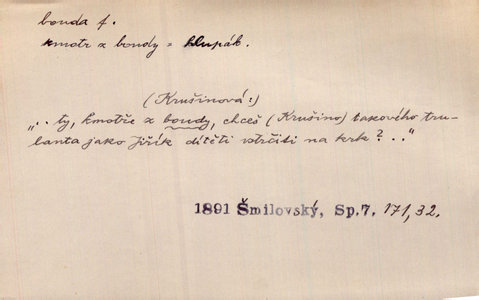 bouda f.
kmotr z boudy = hlupák.
(Krušinová:)
"... ty, kmotře z boudy, chceš (Krušino) takového tru-
lanta jako Jiřík dítěti vstrčiti na krk? ..."
1891 Šmilovský, Sp. 7. 171, 32.